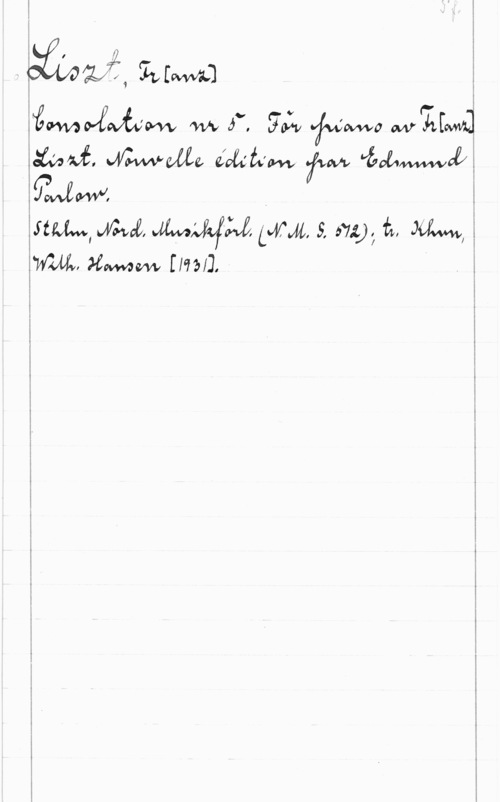 5 f.
Liszt, Fr[anz]
Consolation nr 5. För piano av Fr[anz]
Liszt. Nouvelle édition par Edmund
Parlow.
Sthlm, Nord. Musikförl. (N.M.S. 572); tr. Khvn,
Wilh. Hansen [1931].